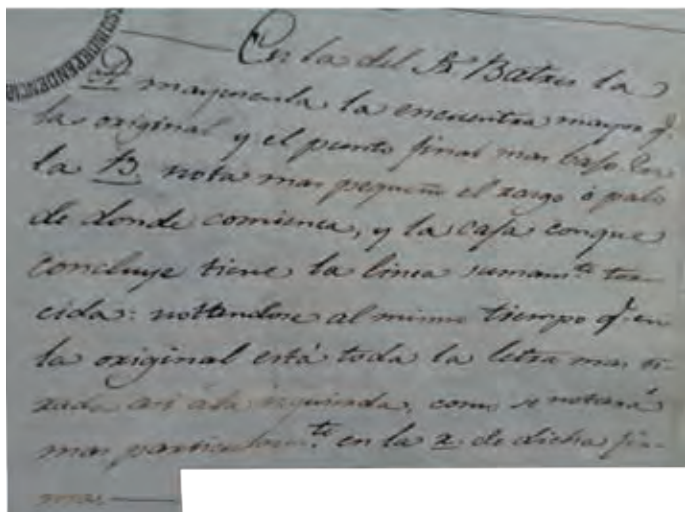 INDEPENDENCIA
En la del Sr Batres la
R mayuscula la encuentra mayor q.
la original y el punto final mas bajo. En
la B. nota mas pequeño el rasgo ó palo
de donde comienza, y la caja conque
concluye tiene la linea sumamte tor-
cida: nottandose al mismo tiempo q. en
la original está toda la letra mas ti-
rada asi á la izquierda, como se notará
mas particularmte en la z. de dicha fir-